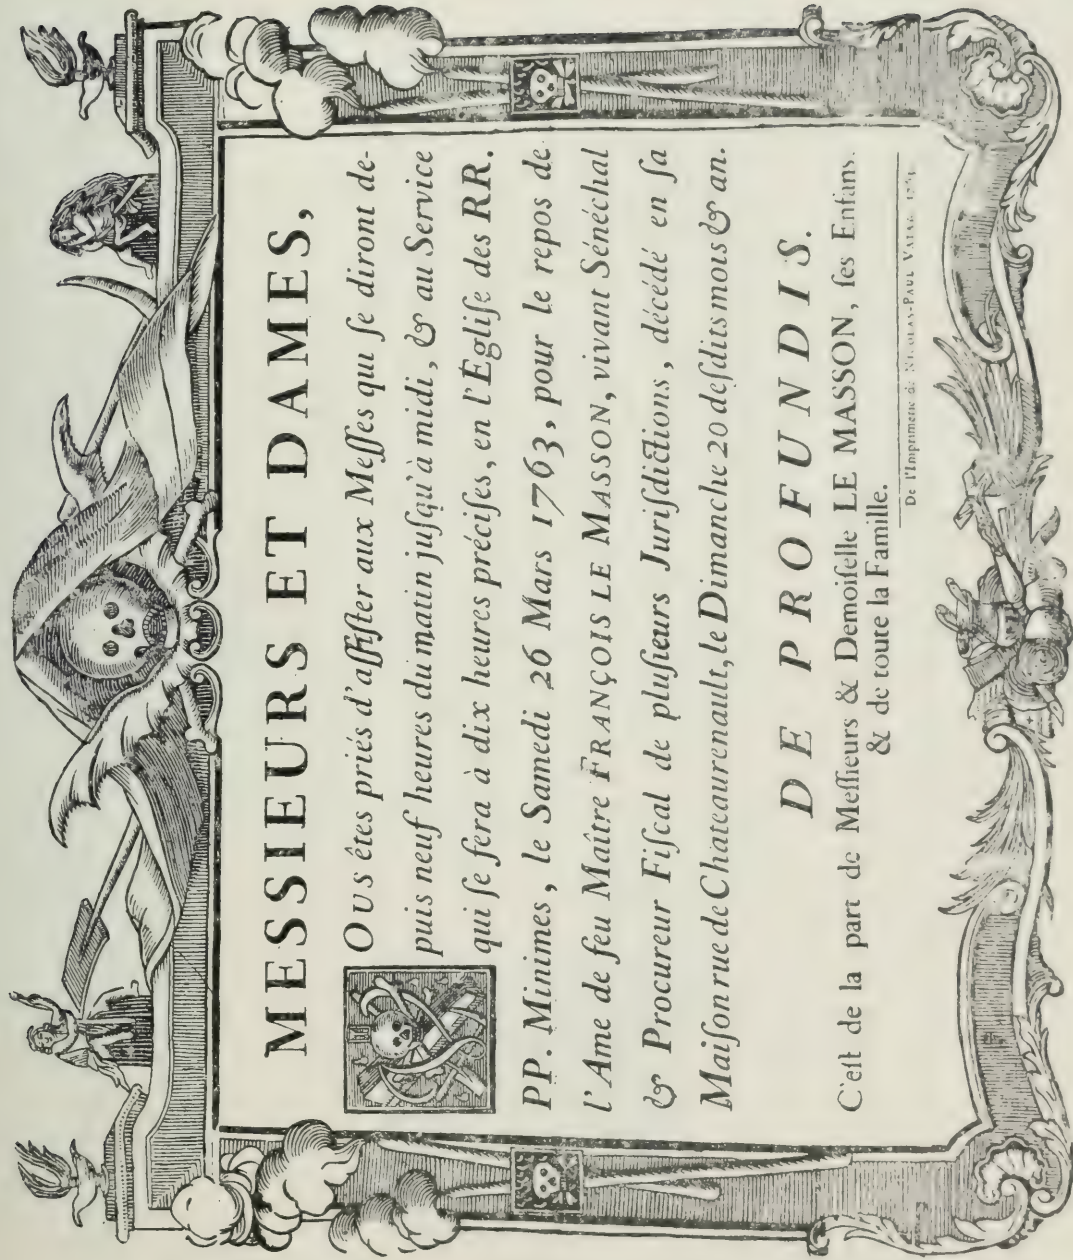 MESSIEURS ET DAMES,
Ous êtes priés d'aſſiſter aux Meſſes qui ſe diront de-
puis neuf heures du matin juſqu'à midi, & au Service
qui ſe fera à dix heures préciſes, en l'Égliſe des RR.
PP. Minimes, le Samedi 26 Mars 1763, pour le repos de
l'Ame de feu Maître FRANÇOIS LE MASSON, vivant Sénéchal
& Procureur Fiſcal de pluſieurs Juriſdictions, décédé en ſa
Maiſon rue de Chateaurenault, le Dimanche 20 deſdits mois & an.
DE PROFUNDIS.
C'eſt de la part de Meſſieurs & Demoiſelle LE MASSON, ſes Enfans.
& de toute la Famille.
De l'Imprimerie de NICOLAS-PAUL